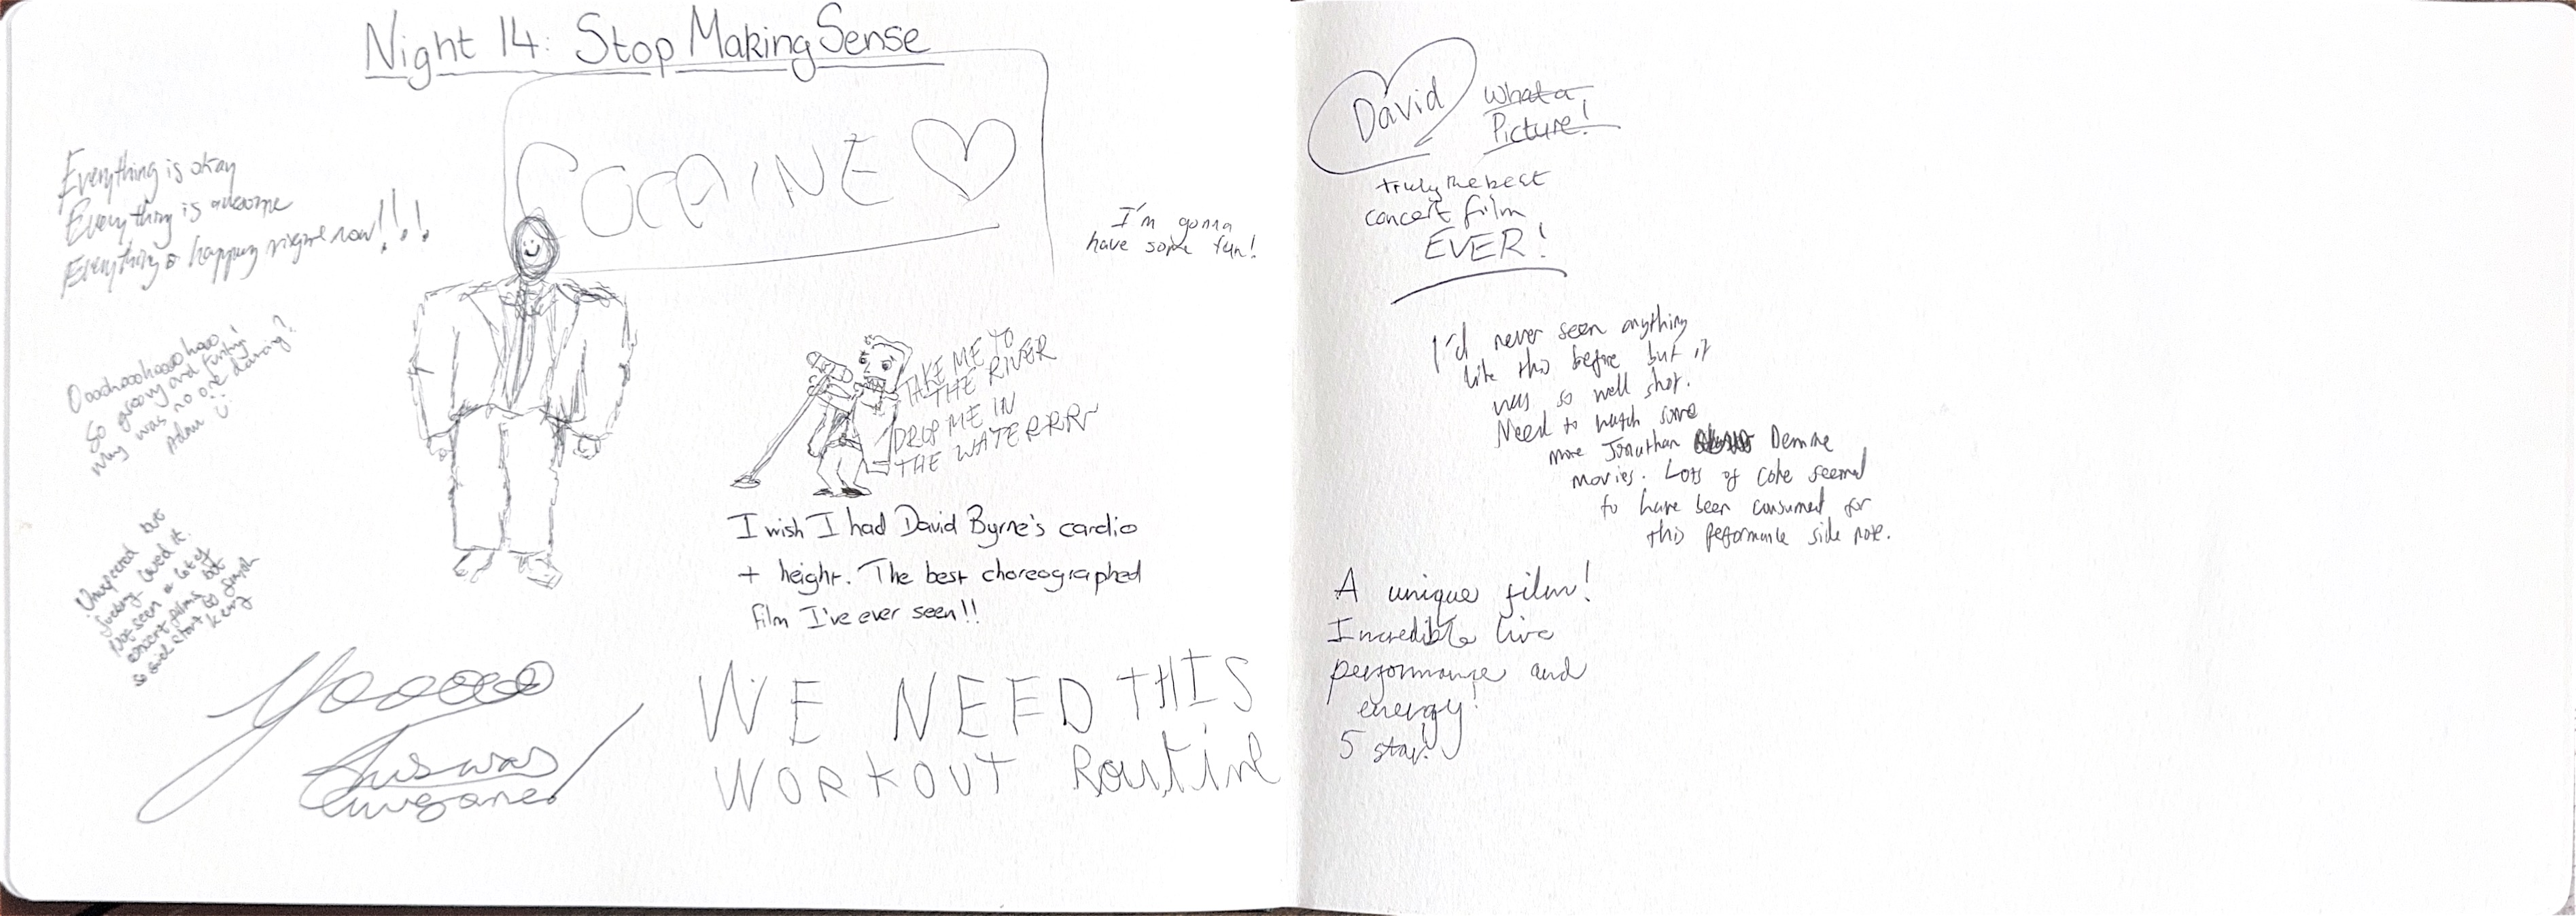 Night 14: Stop Making Sense
COCAINE
Everything is okay
Everything is awesome
Everything is happing right now!!!!
I'm gonna
have some fun!
Oooohooohoooohooo
So groovy and funky
why was no one dancing?
Adam
TAKE ME TO
THE RIVER
DROP ME IN
THE WATERRRR
Unexpected but
fucking loved it.
Not seen a lot of
concert films but
I wish I had David Byrne's cardio
+ height. The best choreographed
film I've ever seen!!
Yooooo
this was
WE NEED THIS
WORKOUT Routine
David
What a
Picture!
truly the best
concert film
EVER!
I'd never seen anything
like this before but it
was so well shot.
Need to watch some
more Jonathan Demme
movies. Lots of coke seemed
to have been consumed for
this peformance side note.
A unique film!
Incredible live
performance and
energy!
5 star!